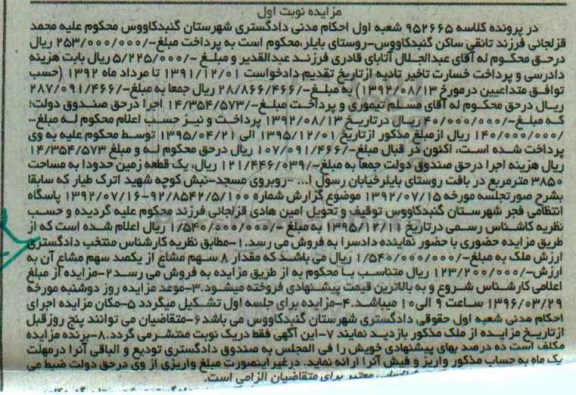 مزایده نوبت اول
در پرونده کلاسه ۹۵۲۶۶۵ شعبه اول احکام مدنی دادگستری شهرستان گنبدکاووس محکوم علیه محمد
قزلجانی فرزند تانقی ساکن گنبدکاووس-روستای بایلر،محکوم است به پرداخت مبلغ-/۲۵۳/۰۰۰/۰۰۰ ریال
درحق محکوم له آقای عبدالجلال آتابای قادری فرزند عبدالقدیر و مبلغ -/۵/۲۲۵/۰۰۰ ریال بابت هزینه
دادرسی و پرداخت خسارت تاخیر تادیه ازتاریخ تقدیم دادخواست ۱۳۹۱/۱۲/۰۱ تا مرداد ماه ۱۳۹۲ (حسب
توافق متداعیین درمورخ ۱۳۹۲/۰۸/۱۳) به مبلغ-/۲۸/۸۶۶/۴۶۶ ریال جمعا به مبلغ-/۲۸۷/۰۹۱/۴۶۶
ریال درحق محکوم له آقای مسلم تیموری و پرداخت مبلغ-/۱۴/۳۵۴/۵۷۳ اجرا درحق صندوق دولت؛
که مبلغ-/۴۰/۰۰۰/۰۰۰ ریال درتاریخ ۱۳۹۲/۰۸/۱۳ پرداخت و نیز حسب اعلام محکوم له مبلغ-
/۱۴۰/۰۰۰/۰۰۰ ریال ازمبلغ مذکور ازتاریخ ۱۳۹۵/۱۲/۰۱ الی ۱۳۹۵/۰۴/۲۱ توسط محکوم علیه به وی
پرداخت شده است، اکنون در قبال مبلغ-/۱۰۷/۰۹۱/۴۶۶ ریال درحق محکوم له و مبلغ ۱۴/۳۵۴/۵۷۳
ریال هزینه اجرا درحق صندوق دولت جمعا به مبلغ-/۱۲۱/۴۴۶/۰۳۹ ریال، یک قطعه زمین حدودا به مساحت
۳۸۵۰ مترمربع در بافت روستای بایلرخیابان رسول ا... -روبروی مسجد-نبش کوچه شهید اترک طیار که سابقا
بشرح صورتجلسه مورخه ۱۳۹۲/۰۷/۱۵ موضوع گزارش شماره ۹۲/۸۵۴۲/۵/۱۰۰-۱۳۹۲/۰۷/۱۶ پاسگاه
انتظامی فجر شهرستان گنبدکاووس توقیف و تحویل امین هادی قزلجانی فرزند محکوم علیه گردیده و حسب
نظریه کاشناس رسمی درتاریخ ۱۳۹۵/۱۲/۱۱ به مبلغ -/۱/۵۴۰/۰۰۰/۰۰۰ ریال اعلام شده است که از
طریق مزایده حضوری با حضور نماینده دادسرا به فروش می رسد.۱-مطابق نظریه کارشناس منتخب دادگستری
ارزش ملک به مبلغ-/۱/۵۴۰/۰۰۰/۰۰۰ ریال می باشد که مقدار ۸ سهم مشاع از یکصد سهم مشاع آن به
ارزش-/۱۲۳/۲۰۰/۰۰۰ ریال متناسب با محکوم به از طریق مزایده به فروش می رسد۲-مزایده از مبلغ
اعلامی کارشناس شروع و به بالاترین قیمت پیشنهادی فروخته میشود.۳-موعد مزایده روز دوشنبه مورخه
۱۳۹۶/۰۳/۲۹ ساعت ۹ الی۱۰ میباشد.۴-مزایده برای جلسه اول تشکیل میگردد ۵-مکان مزایده اجرای
احکام مدنی شعبه اول حقوقی دادگستری شهرستان گنبدکاووس می باشد۶-متقاضیان می توانند پنج روزقبل
ازتاریخ مزایده از ملک مذکور بازدید نمایند ۷-این آگهی فقط دریک نوبت منتشرمی گردد.۸-برنده مزایده
مکلف است ده درصد بهای پیشنهادی خویش را فی المجلس به صندوق دادگستری تودیع و الباقی آنرا درمهلت
یک ماه به حساب مذکور واریز و فیش آنرا ارائه نماید، درغیر اینصورت مبلغ واریزی از وی درحق دولت ضبط می
معتبر برای متقاضیان الزامی است.